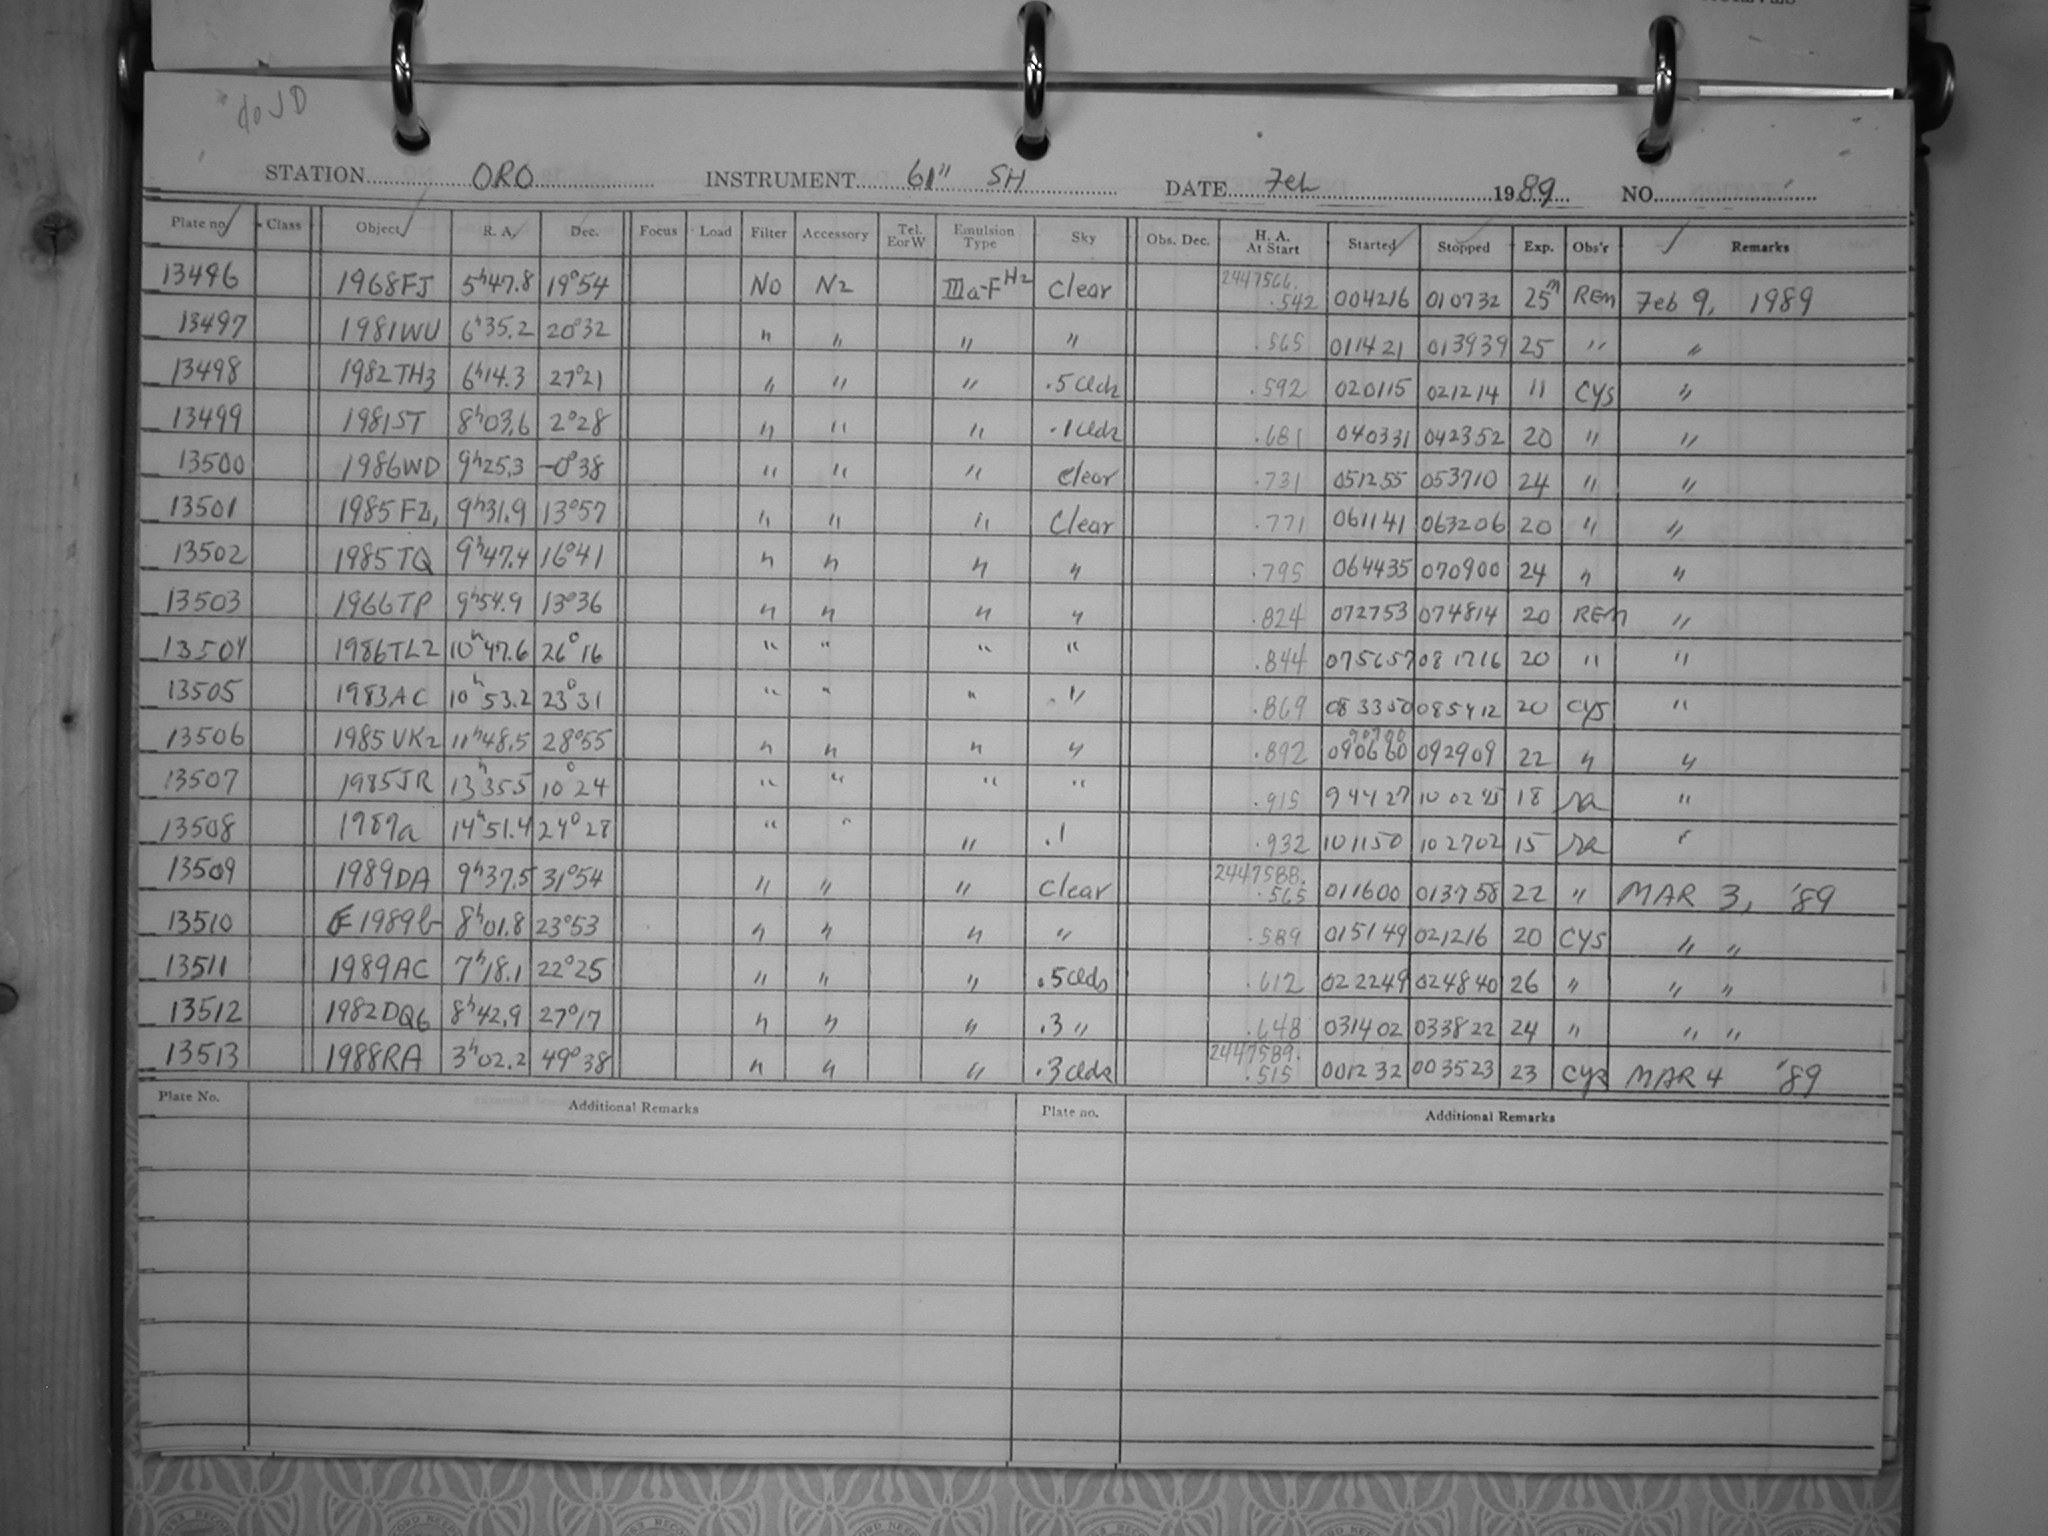 do JD
STATION ORO INSTRUMENT 61" SH DATE Feb 1989 NO.
Plate no Class Object R. A. Dec. Focus Load Filter Accessory Tel. E or W Emulsion Type Sky Obs. Dec. H. A. At Start Started Stopped Exp. Obs'r Remarks
13496 1968FJ 5h47.8 19°54 No N2 IIIa-F H2 Clear 2447566. .542 004216 010732 25m REM Feb 9, 1989
13497 1981WU 6h35.2 20°32 " " " " .565 011421 013939 25 " "
13498 1982TH3 6h14.3 27°21 " " " .5 Clds .592 020115 021214 11 CYS "
13499 1981ST 8h03.6 2°28 " " " .1 Clds .681 040331 042352 20 " "
13500 1986WD 9h25.3 -0°38 " " " Clear .731 051255 053710 24 " "
13501 1985FZ1 9h31.9 13°57 " " " Clear .771 061141 063206 20 " "
13502 1985TQ 9h47.4 16°41 " " " " .795 064435 070900 24 " "
13503 1966TP 9h54.9 13°36 " " " " .824 072753 074814 20 REM "
13504 1986TL2 10h47.6 26°16 " " " " .844 075657 081716 20 " "
13505 1983AC 10h53.2 23°31 " " " " .869 083350 085412 20 CYS "
13506 1985VK2 11h48.5 28°55 " " " " .892 090660 092909 22 " "
13507 1985JR 13h35.5 10°24 " " " " .915 94427 100245 18 ra "
13508 1989a 14h51.4 24°28 " " " .1 .932 101150 102702 15 ra "
13509 1989DA 9h37.5 31°54 " " " Clear 2447588. .565 011600 013758 22 " MAR 3, '89
13510 1989b 8h01.8 23°53 " " " " .589 015149 021216 20 CYS " "
13511 1989AC 7h18.1 22°25 " " " .5 Clds .612 022249 024840 26 " " "
13512 1982DQ6 8h42.9 27°17 " " " .3 " .648 031402 033822 24 " " "
13513 1988RA 3h02.2 49°38 " " " .3 Clds 2447589. .515 001232 003523 23 CYS MAR 4 '89
Plate No. Additional Remarks Plate no. Additional Remarks